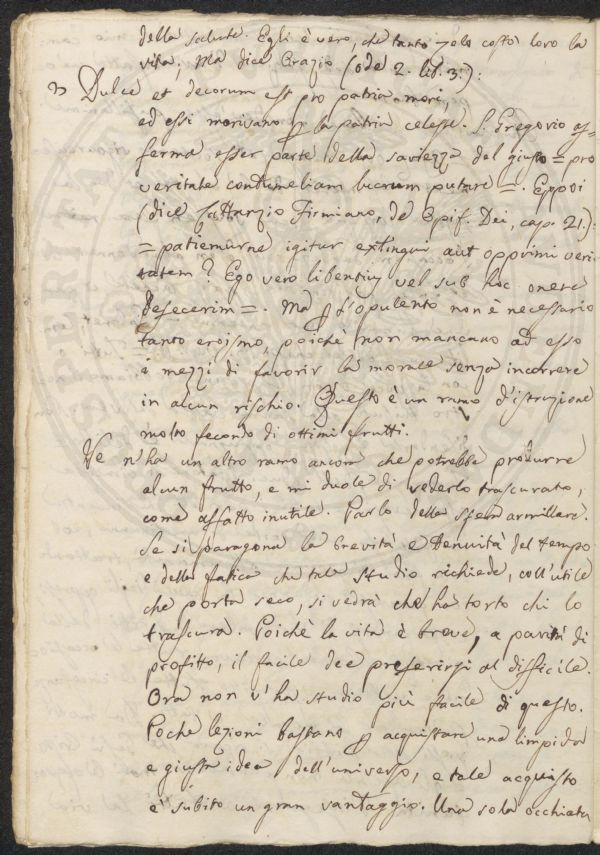 della salute. Egli è vero, che tanto zelo costò loro la
vita; Ma dice Orazio (ode 2. lib. 3.):
Dulce et decorum est pro patria mori,
ed essi morivano p la patria celeste. S. Gregorio af-
ferma esser parte della saviezza del giusto = pro
veritate contumeliam lucrum putare =. Eppoi
(dice Lattanzio Firmiano, de Opif. Dei, cap. 21.):
= patiemurne igitur extingui aut opprimi veri-
tatem? Ego vero libentius vel sub hoc onere
defecerim =. Ma p l'opulento non è necessario
tanto eroismo, poichè non mancano ad esso
i mezzi di favorir la morale senza incorrere
in alcun rischio. Questo è un ramo d'istruzione
molto fecondo di ottimi frutti.
Ve n'ha un altro ramo ancora che potrebbe produrre
alcun frutto, e mi duole di vederlo trascurato,
come affatto inutile. Parlo della sfera armillare.
Se si paragona la brevità, e tenuità del tempo
e della fatica che tale studio richiede, coll'utile
che porta seco, si vedrà che ha torto chi lo
trascura. Poichè la vita è breve, a parità di
profitto, il facile dee preferirsi al difficile.
Ora non v'ha studio più facile di questo.
Poche lezioni bastano p acquistare una limpida
e giusta idea dell'universo, e tale acquisto
è subito un gran vantaggio. Una sola occhiata